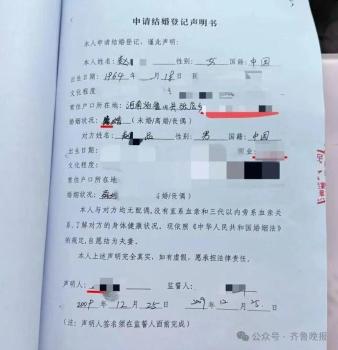 申请结婚登记声明书
本人申请结婚登记,谨此声明:
本人姓名: 性别: 女 国籍: 中国
出生日期: 1964年 月18日
文化程度
常住户口所在地:河南
婚姻状况: (未婚/离婚/丧偶)
对方姓名: 性别: 男 国籍: 中国
出生日期: 职业:
文化程度:
常住户口所在地:
婚姻状况: 婚/丧偶)
本人与对方均无配偶,没有直系血亲和三代以内旁系血亲关
系,了解对方的身体健康状况。现依照《中华人民共和国婚姻法》
的规定,自愿结为夫妻。
本人上述声明完全真实,如有虚假,愿承担法律责任。
声明人: 监督人:
2009年12月25日 2009年12月25日
(注:声明人签名须在监督人面前完成)
公众号·齐鲁晚报